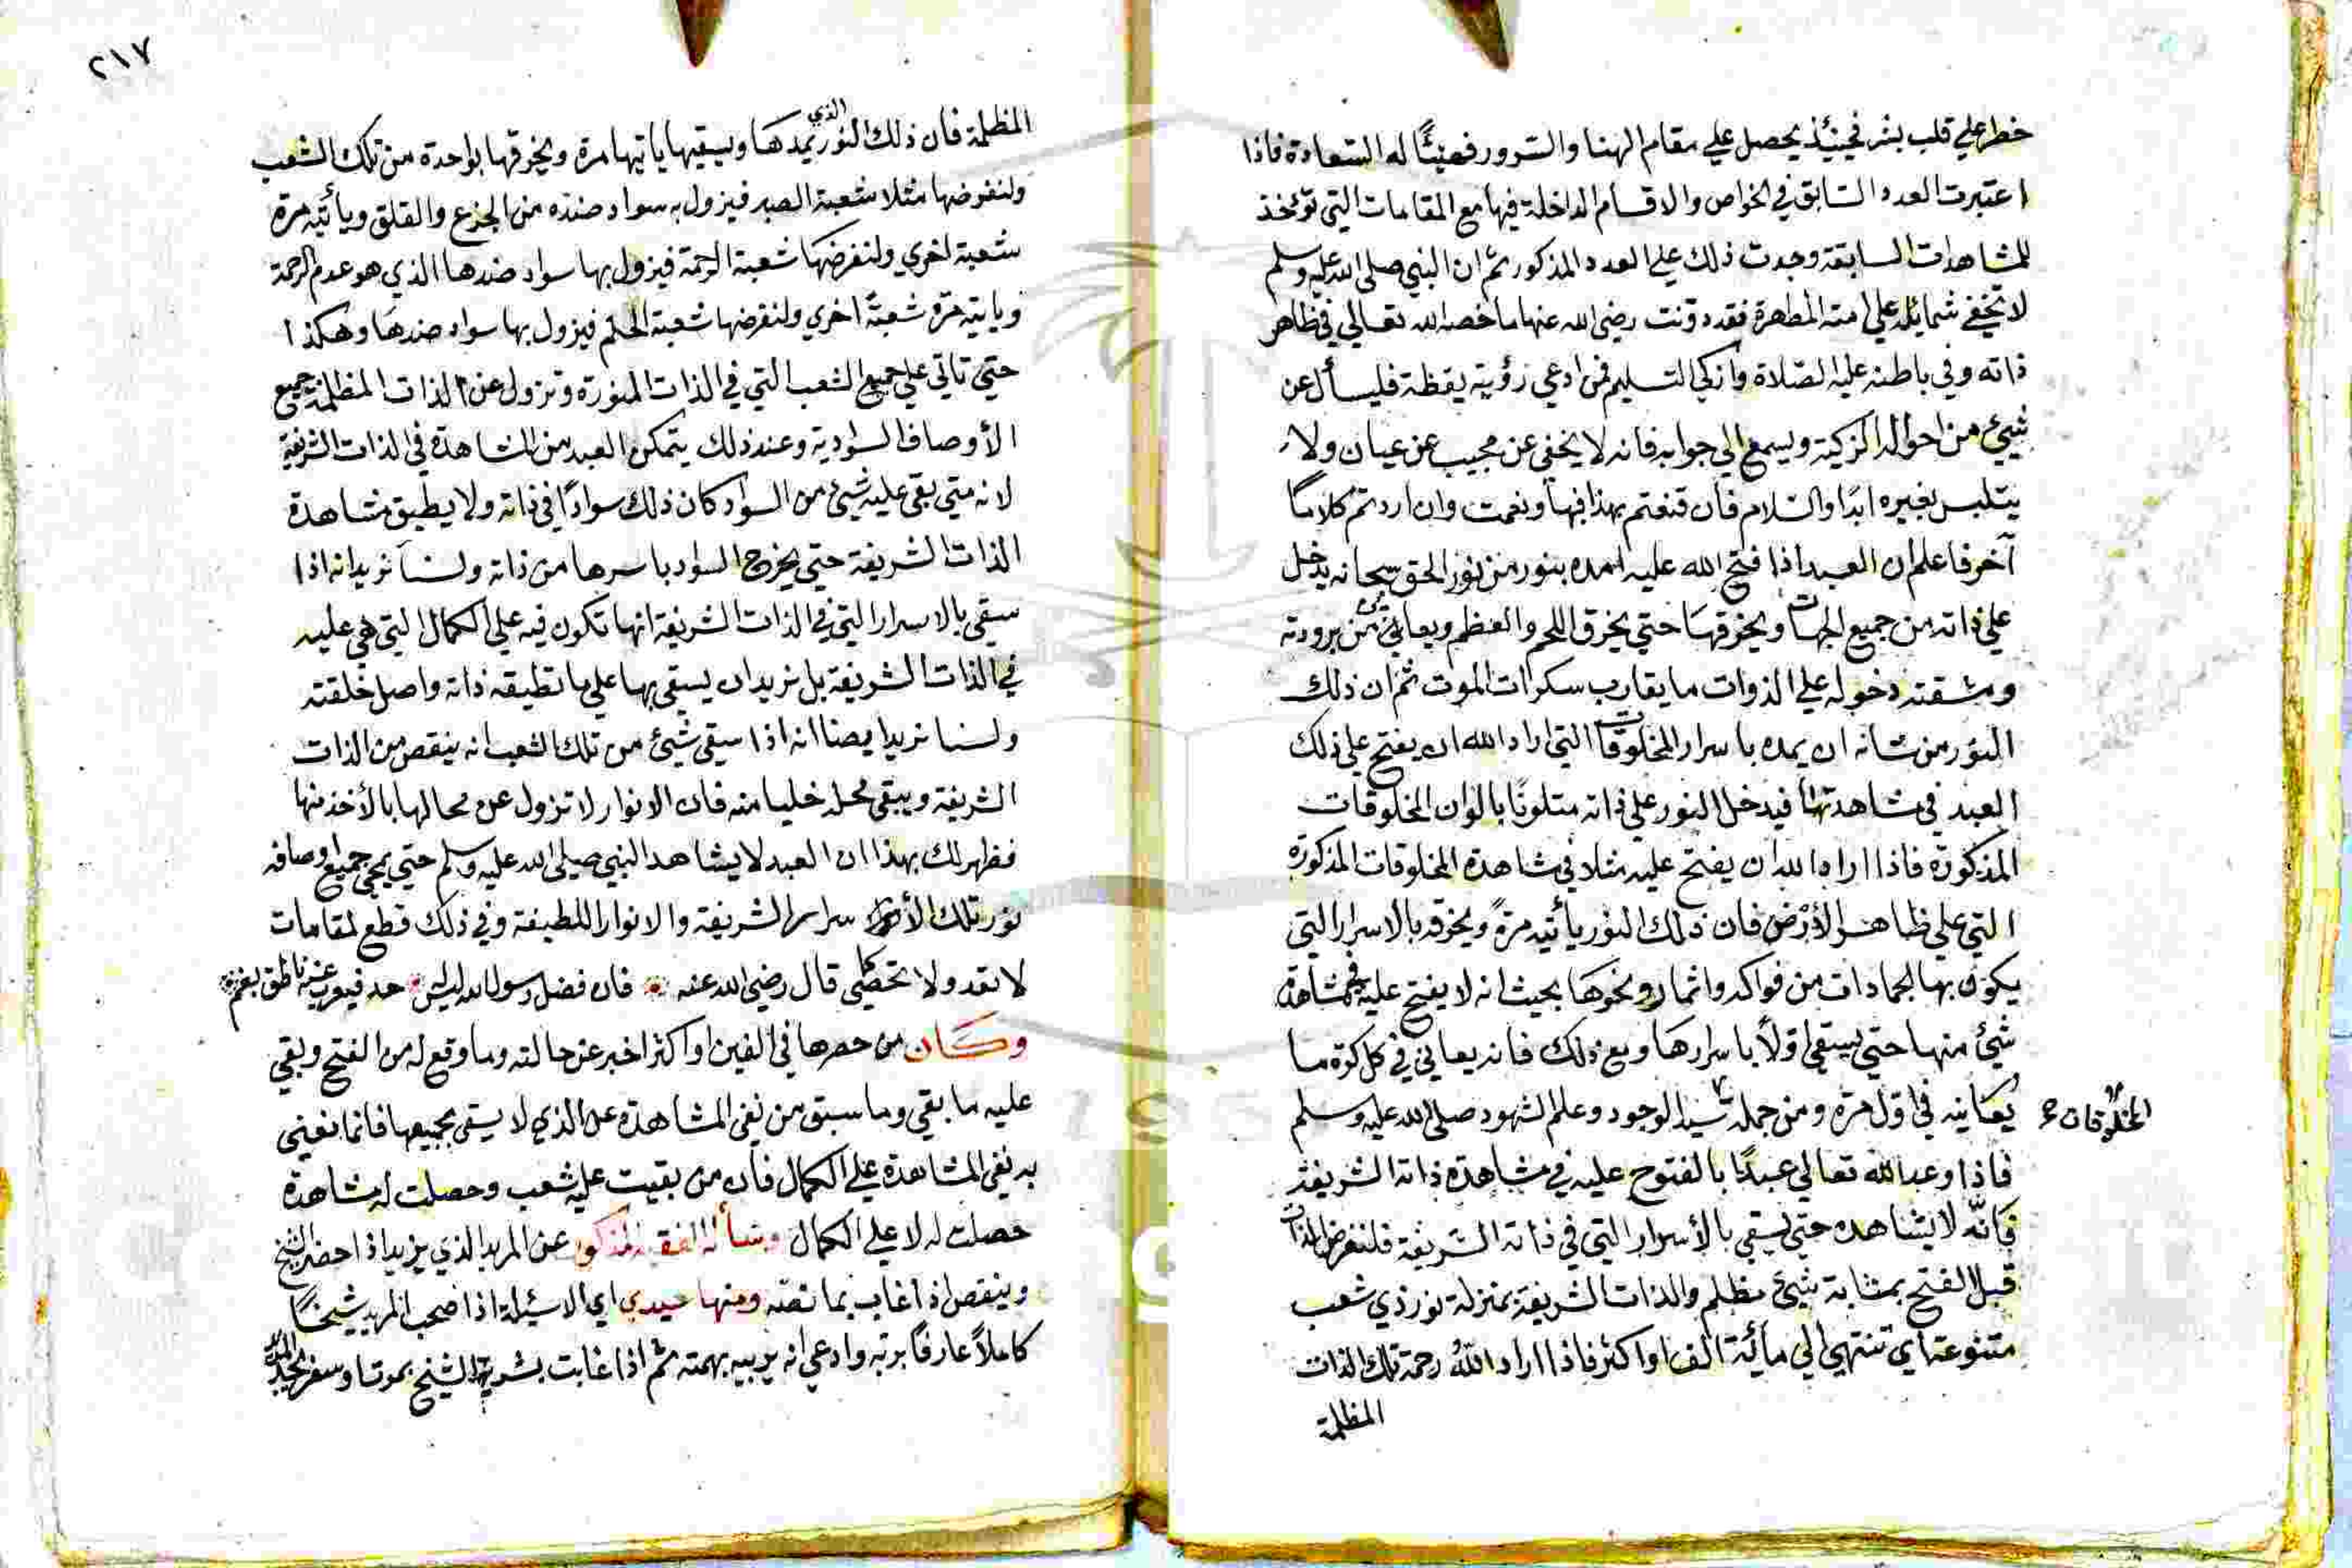 خطر علي قلب بشر فحينئذ يحصل علي مقام الهنا والسرور فهنيئًا له السعادة فاذا
اعتبرت العدد السابق في الخواص والاقسام الداخلة فيها مع المقامات التي تؤخذ
للمشاهدات السابقة وجدت ذلك علي العدد المذكور ثم ان النبي صلي الله عليه وسلم
لا تخفي شمايله علي امته المطهرة فقد دونت رضي الله عنها ما خصه الله تعالي في ظاهر
ذاته وفي باطنه عليه الصلاة وازكي التسليم فمن ادعي رؤيته يقظة فليسأل عن
شيئ من احواله الزكية ويسمع الي جوابه فانه لا يخفي عن مجيب عن عيان ولا
يتلبس بغيره ابدًا والسلام فان قنعتم بهذا فبها ونعمت وان اردتم كلامًا
آخر فاعلم ان العبد اذا فتح الله عليه امده بنور من نور الحق سبحانه يدخل
علي ذاته من جميع الجهات ويخرقها حتي يخرق اللحم والعظم ويعاني من برودته
ومشقته دخوله علي الذوات ما يقارب سكرات الموت ثم ان ذلك
النور من شانه ان يمده باسرار المخلوقات التي اراد الله ان يفتح علي ذلك
العبد في مشاهدتها فيدخل النور علي ذاته متلونًا بالوان المخلوقات
المذكورة فاذا اراد الله ان يفتح عليه مثلا في مشاهدة المخلوقات المذكورة
التي علي ظاهر الأرض فان ذلك النور يأتيه مرةً ويخرقه بالاسرار التي
يكون بها الجمادات من فواكه واثمار ونحوها بحيث انه لا يفتح عليه في مشاهدة
شيئ منها حتي يسقي اوّلاً باسرارها ومع ذلك فانه يعاني في كل كرة ما
يعانيه في اول مرة ومن جملة سيد الوجود وعلم الشهود صلي الله عليه وسلم
المخلوقات
فاذا وعد الله تعالي عبدًا بالفتوح عليه في مشاهدة ذاته الشريفة
فانّه لا يشاهده حتي يسقي بالأسرار التي في ذاته الشريفة فلنفرض الذات
قبل الفتح بمثابة شيئ مظلم والذات الشريفة بمنزلة نور ذي شعب
متنوعة اي تنتهي الي مائة الف او اكثر فاذا اراد اللهُ رحمة تلك الذات
المظلمة
٢١٧
المظلمة فان ذلك النور الذي يمدها ويسقيها ياتيها مرة ويخرقها بواحدة من تلك الشعب
ولنفرضها مثلا شعبة الصبر فيزول به سواد ضده من الجزع والقلق ويأتيه مرة
شعبة اخري ولنفرضها شعبة الرحمة فيزول بها سواد ضدها الذي هو عدم الرحمة
وياتيه مرّة شعبةً اخري ولنفرضها شعبة الحلم فيزول بها سواد ضدها وهكذا
حتي تاتي علي جميع الشعب التي في الذات المنورة وتزول عن الذات المظلمة جميع
الأوصاف السوادية وعند ذلك يتمكن العبد من المشاهدة في الذات الشريفة
لانه متي بقي عليه شيئ من السواد كان ذلك سوادًا في ذاته ولا يطيق مشاهدة
الذات الشريفة حتي يخرج السواد باسرها من ذاته ولسنا نريد انه اذا
سقي بالاسرار التي في الذات الشريفة انها تكون فيه علي الكمال التي هي عليه
في الذات الشريفة بل نريد ان يسقي بها علي ما تطيقه ذاته واصل خلقته
ولسنا نريد ايضا انه اذا سقي شيئ من تلك الشعب انه ينقص من الذات
الشريفة ويبقي محله خليا منه فان الانوار لا تزول عن محالها بالأخذ منها
فظهر لك بهذا ان العبد لا يشاهد النبي صلي الله عليه وسلم حتي يمحي جميع اوصافه
نور تلك الأ سرار الشريفة والانوار اللطيفة وفي ذلك قطع لمقامات
لا تعد ولا تحصي كما قال رضي الله عنه فان فضل رسول الله ليس حد فيعرب عنه ناطق بفم
وكان من حصرها في الفين او اكثر اخبر عن حالته وما وقع له من الفتح وبقي
عليه ما بقي وما سبق من نفي المشاهدة عن الذي لا يسقي بجميعها فانما نعني
به نفي المشاهدة علي الكمال فان من بقيت عليه شعب وحصلت له مشاهدة
حصلت له لا علي الكمال وسأله الفقيه المذكور عن المريد الذي يزيد اذا حضر الشيخ
وينقص اذا غاب بما نصه ومنها سيدي اي الاسئلة اذا صحب المريد شيخًا
كاملاً عارفًا بربه وادعي انه يربيه بهمته ثم اذا غابت بشرية الشيخ بموت او سفر